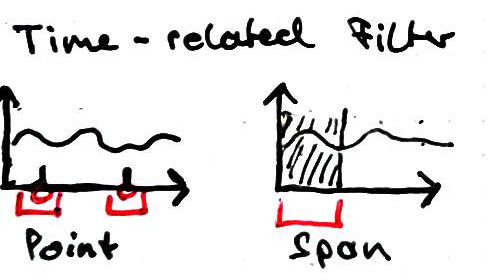 Time-related Filter
Point
Span